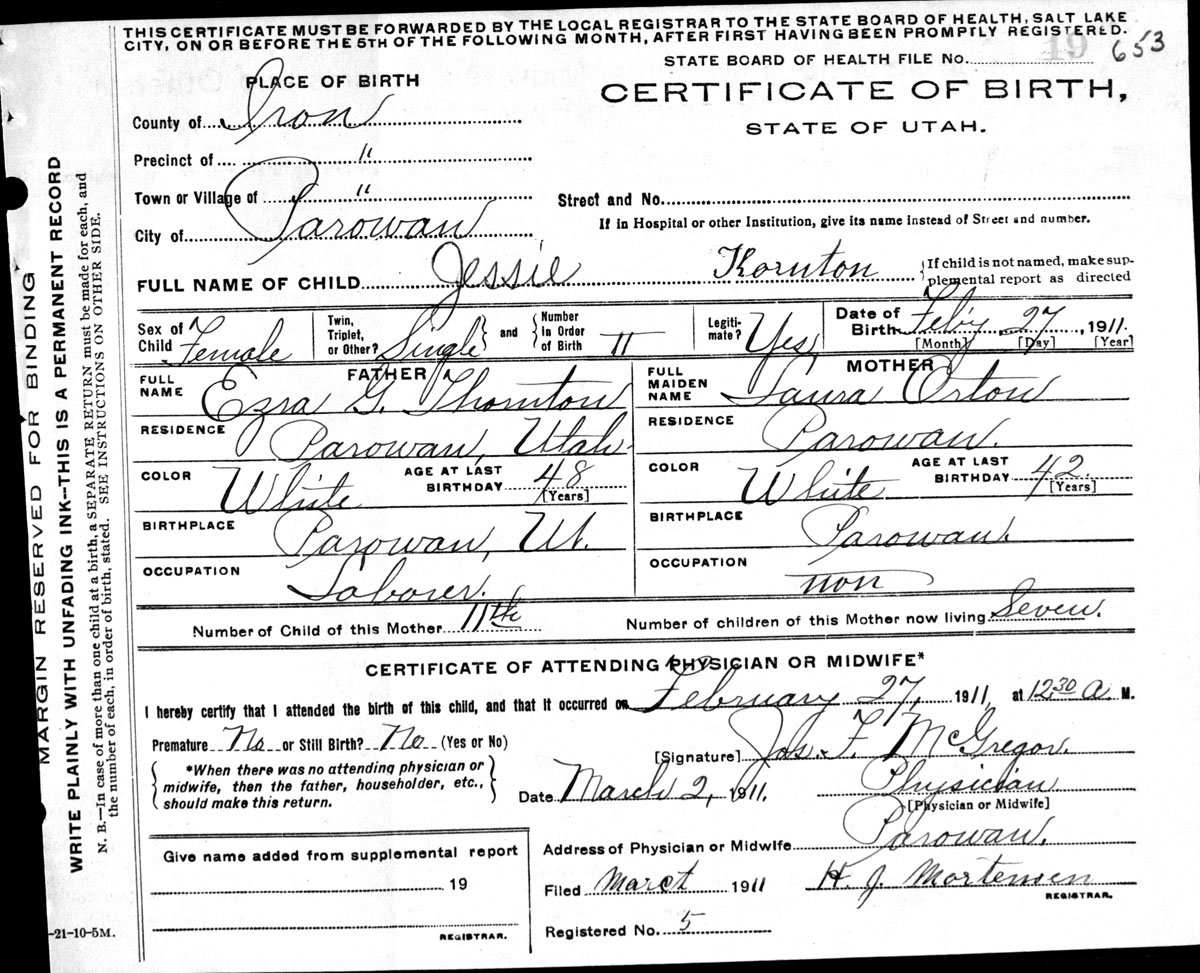 THIS CERTIFICATE MUST BE FORWARDED BY THE LOCAL REGISTRAR TO THE STATE BOARD OF HEALTH, SALT LAKE
CITY, ON OR BEFORE THE 5TH OF THE FOLLOWING MONTH, AFTER FIRST HAVING BEEN PROMPTLY REGISTERED.
49 653
STATE BOARD OF HEALTH FILE No.
PLACE OF BIRTH
CERTIFICATE OF BIRTH,
STATE OF UTAH.
County of Iron
Precinct of "
Town or Village of "
Street and No.
City of Parowan
If in Hospital or other Institution, give its name instead of Street and number.
FULL NAME OF CHILD Jessie Kornton {If child is not named, make sup-
plemental report as directed
Sex of Child Female Twin, Triplet, or Other? Single } and { Number In Order of Birth 11 Legiti-mate? Yes, Date of Birth Feb'y 27, 1911.
[Month] [Day] [Year]
FATHER MOTHER
FULL NAME Ezra G. Thornton FULL MAIDEN NAME Laura Orton
RESIDENCE Parowan, Utah RESIDENCE Parowan.
COLOR White AGE AT LAST BIRTHDAY 48 [Years] COLOR White AGE AT LAST BIRTHDAY 42 [Years]
BIRTHPLACE Parowan, Ut. BIRTHPLACE Parowan.
OCCUPATION Laborer. OCCUPATION non
Number of Child of this Mother 11th Number of children of this Mother now living Seven.
CERTIFICATE OF ATTENDING PHYSICIAN OR MIDWIFE*
I hereby certify that I attended the birth of this child, and that it occurred on February 27, 1911, at 12.30 A. M.
Premature No or Still Birth? No (Yes or No)
[Signature] Jos. F. McGregor.
{*When there was no attending physician or
midwife, then the father, householder, etc.,
should make this return.}
Date March 2, 1911. Physician
[Physician or Midwife]
Address of Physician or Midwife Parowan.
Give name added from supplemental report
19
REGISTRAR.
Filed March 1911 H. J. Mortensen
REGISTRAR.
Registered No. 5
-21-10-5M.
MARGIN RESERVED FOR BINDING
WRITE PLAINLY WITH UNFADING INK--THIS IS A PERMANENT RECORD
N. B.—In case of more than one child at a birth, a SEPARATE RETURN must be made for each, and
the number of each, in order of birth, stated. SEE INSTRUCTION ON OTHER SIDE.